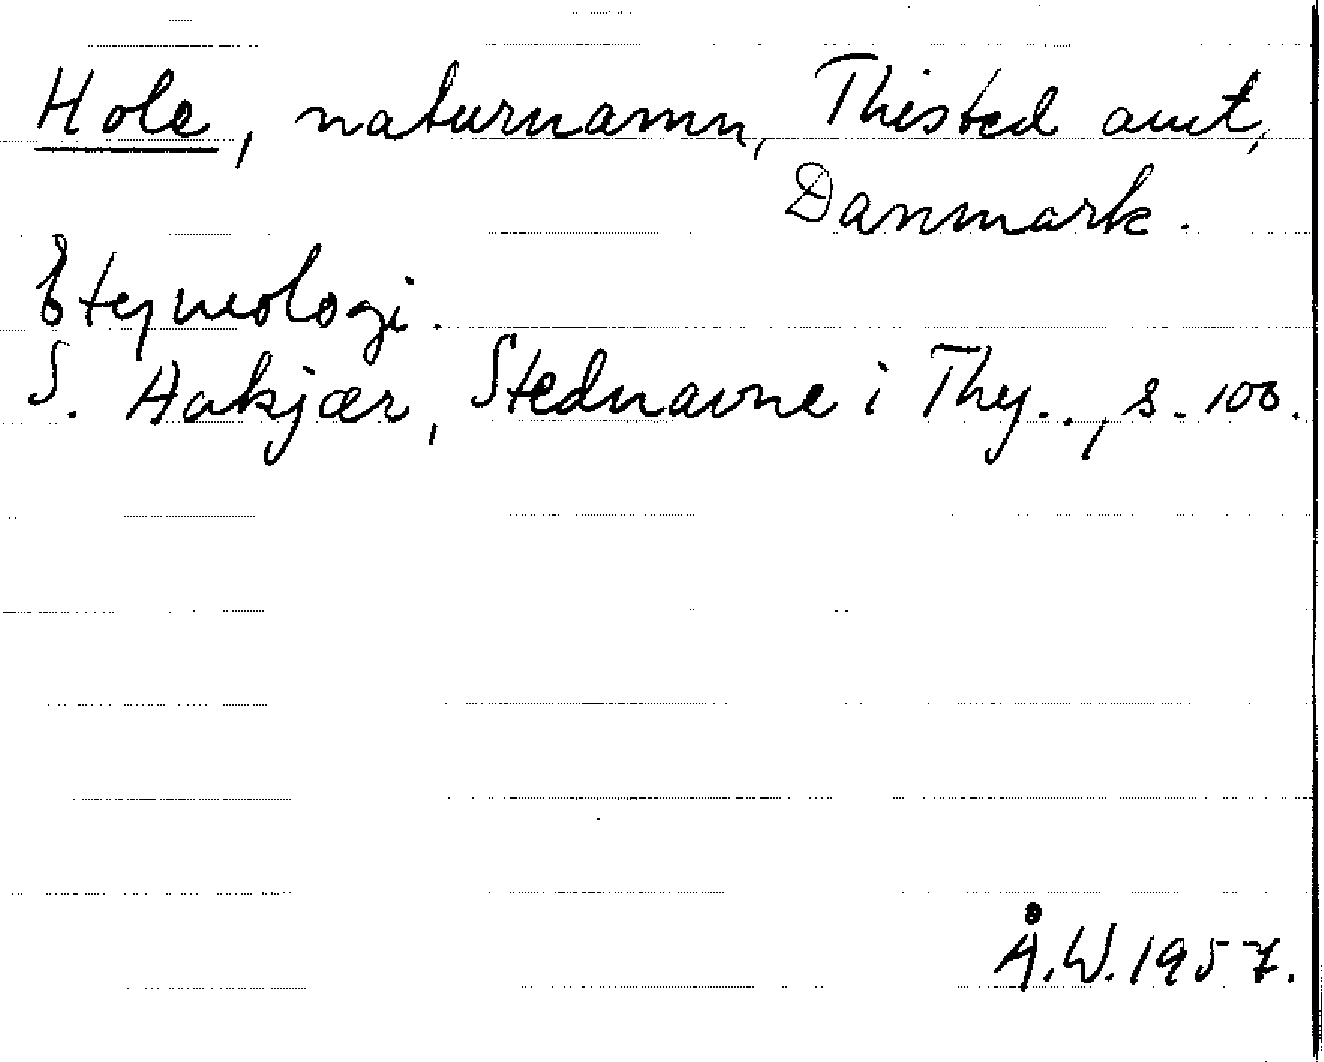 Hole, naturnamn, Thisted amt,
Danmark.
Etymologi.
S. Aakjær, Stednavne i Thy.., s. 100.
Å.W. 1957.